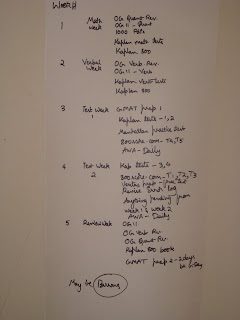 Week#
1 Math Week OG Quant Rev.
OG 11 - Quant
1000 PS/DS
Kaplan math tests
Kaplan 800
2 Verbal Week OG Verb Rev.
OG 11 - Verb
Kaplan Verb Tests
Kaplan 800
3 Test Week 1 GMAT prep 1
Kaplan tests - 1,2
Manhattan practice test
800score.com - T4,T5
AWA - Daily
4 Test Week 2 Kap tests - 3,4
800score.com - T1,T2,T3
Veritas prep - free test
Revise error log
Anything pending from
week 1 & week 2
AWA - Daily
5 Review Week OG 11
OG Verb Rev.
OG Quant Rev
Kaplan 800 book
GMAT prep 2 - 2 days
May be Barrons